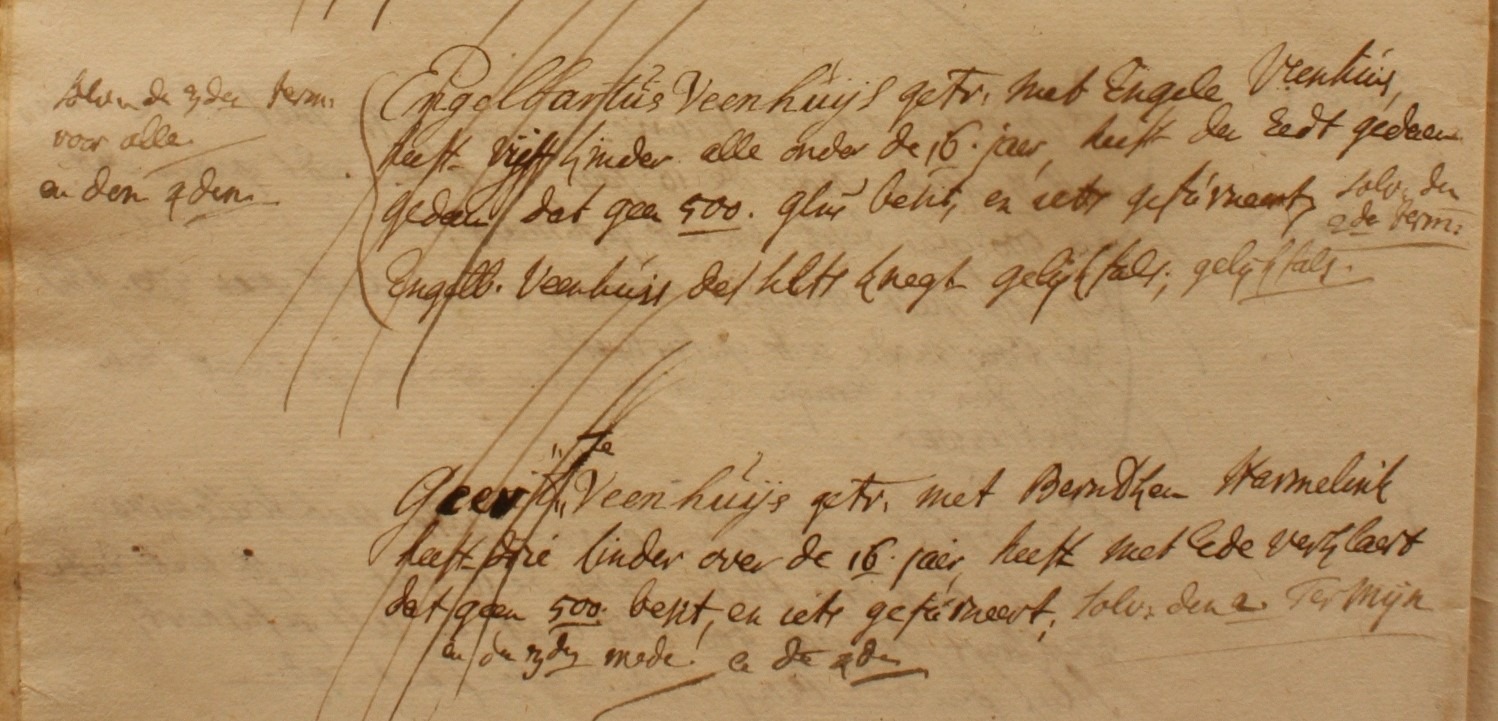 solv: de 3den term:
voor alle.
en den 4den.
Engelbartus Veenhuijs getr. met Engele Veenhuis,
heeft vijff kinder alle onder de 16. jaer, heeft den Eedt gedaen
gedaen dat geen 500. glus besit, en iets gefurneert, solv: den
2de term:
Engelb. Veenhuis des selfs knegt gelijkfals, gelijkfals.
te
Geert Veenhuijs getr. met Berndken Harmelink
heeft drie kinder over de 16. jaer, heeft met Ede verklaert
dat geen 500. besit, en iets gefurneert, solv: den 2. Termijn
en den 3den mede. en de 4den